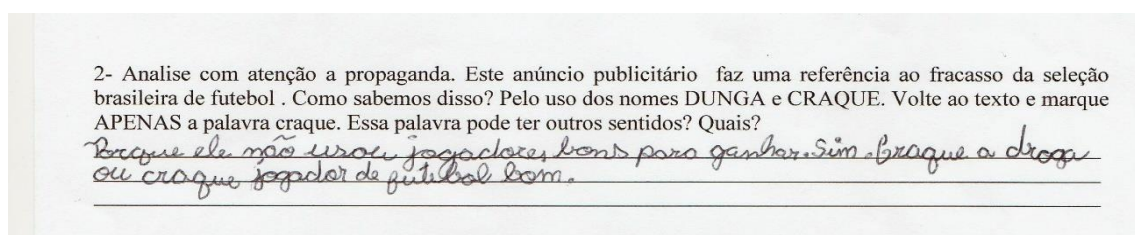 2- Analise com atenção a propaganda. Este anúncio publicitário faz uma referência ao fracasso da seleção
brasileira de futebol . Como sabemos disso? Pelo uso dos nomes DUNGA e CRAQUE. Volte ao texto e marque
APENAS a palavra craque. Essa palavra pode ter outros sentidos? Quais?
Porque ele não usou jogadores bons para ganhar. Sim. Craque a droga
ou craque jogador de futebol bom.